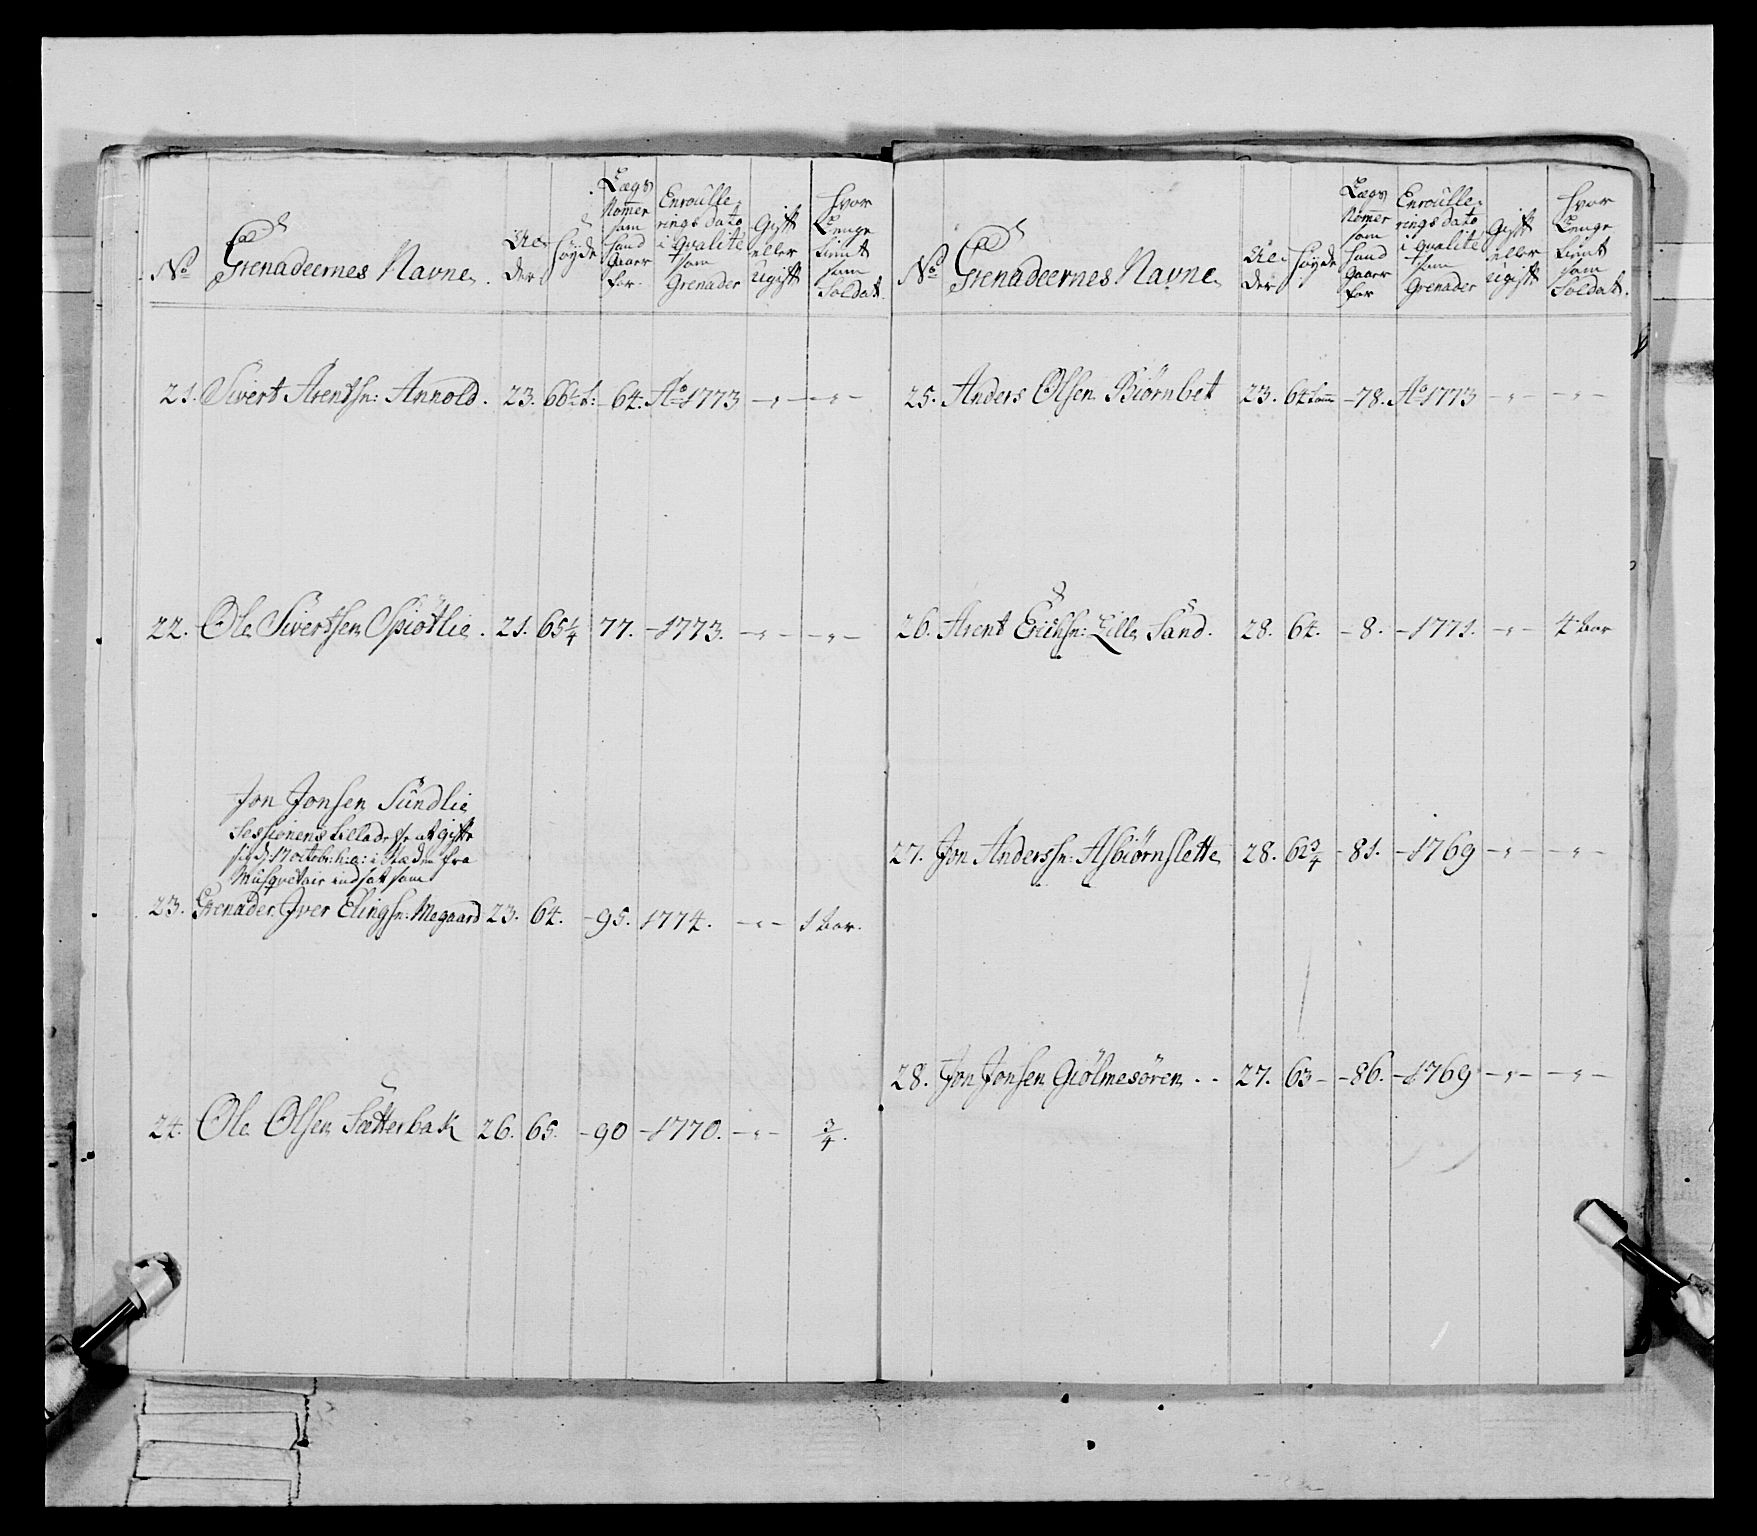 No
Grenadeernes Navne.
Al-
der
Høyde
Lægs
Nomer
som
hand
Gaaer
for.
Enroulle-
rings dato
i Qvalite
som
Grenader
Gift
eller
Ugift
Hvor
Lenge
tient
som
Soldat.
21. Sivert Arentsn: Arnold. 23. 66 1/2 t: - 64. Ao 1773 - " - - " -
22. Ole Sivertsen Spiötlie. 21. 65 1/4 77. - 1773. - " - - " -
Jon Jonsen Sündlie
Sessionens tilladelse at gifte
sig d: 17 octobr: h: a: i stæden fra
Musqvetair indsatt som
23. Grenader Iver Elingsn: Megaard 23. 64. - 95. 1774. - " - 1 aar.
24. Ole Olsen Sætterbak 26. 65. - 90 - 1770. - " - 3/4.
No
Grenadeernes Navne.
Al-
der
Høyde
Lægs
Nomer
som
hand
Gaaer
for
Enroulle-
rings dato
i Qvalite
som
Grenader
Gift
eller
Ugift
Hvor
Lenge
tient
som
Soldat.
25. Anders Olsen Biörnbet 23. 64 tom̅ - 78. Ao 1773 - " - - " -
26. Arent Erichsn: Lille Sand. 28. 64. - 8. - 1771. - " - 4 aar
27. Jon Andersn: Asbiörnslette 28. 62 3/4 - 81. - 1769 - " - - " -
28. Jon Jonsen Giölmesören . . 27. 63 - - 86. - 1769 - " - - " -